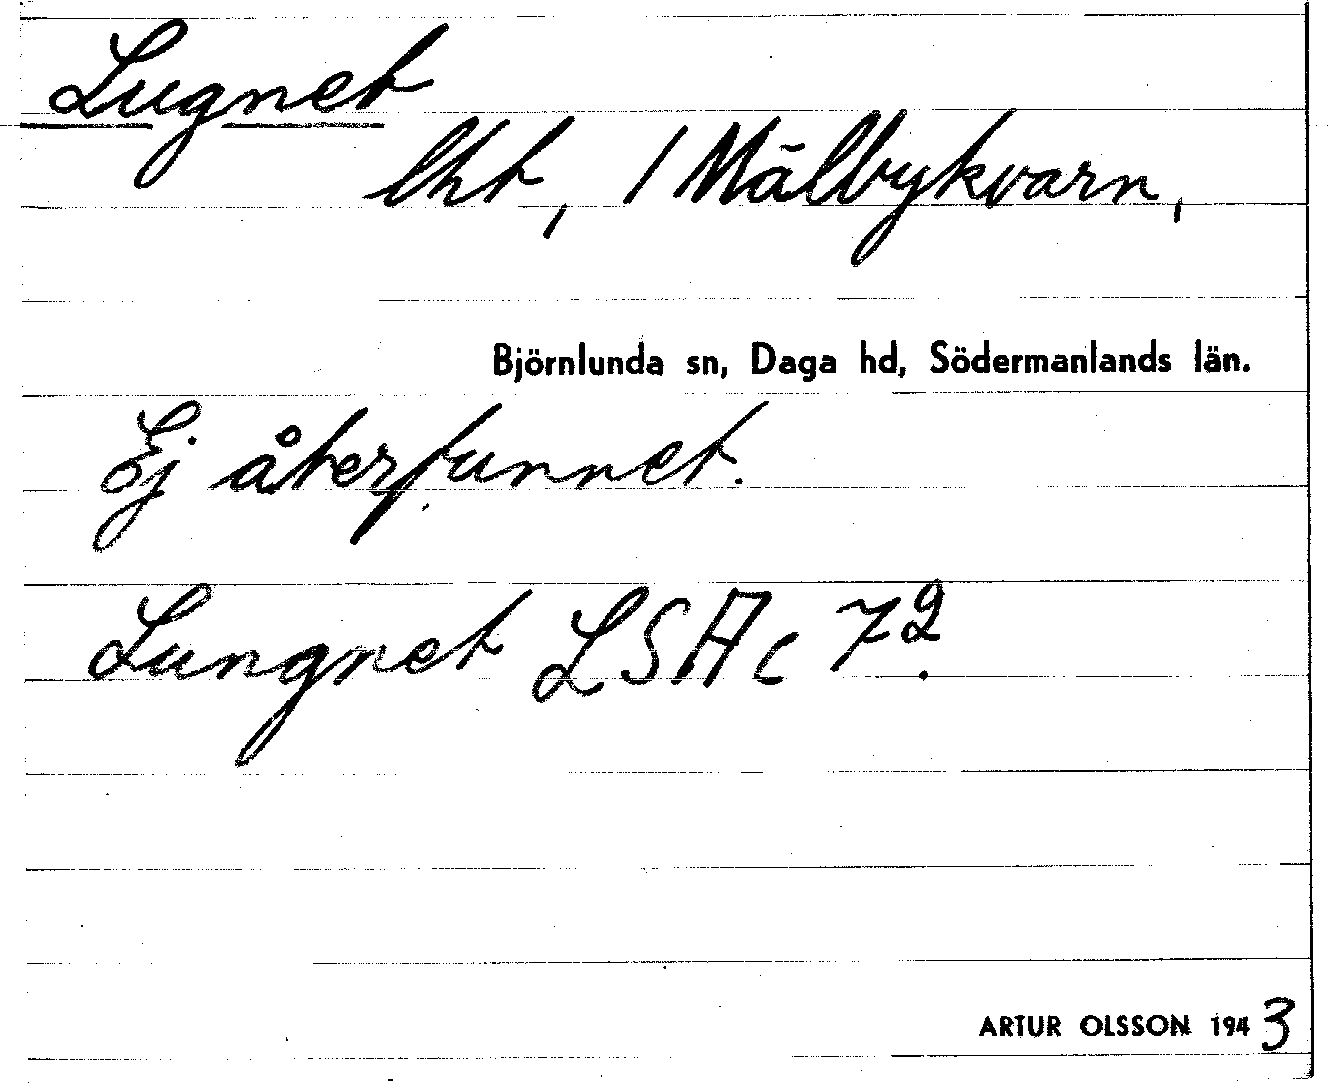 Lugnet
lht, / Mälbykvarn,
Björnlunda sn, Daga hd, Södermanlands län.
Ej återfunnet.
Lungnet LSA c 72.
ARTUR OLSSON 1943